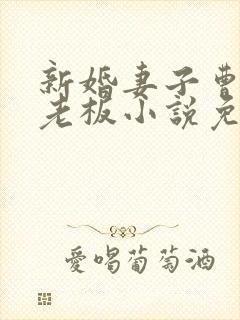 新婚妻子曹
老板小說免
愛喝葡萄酒